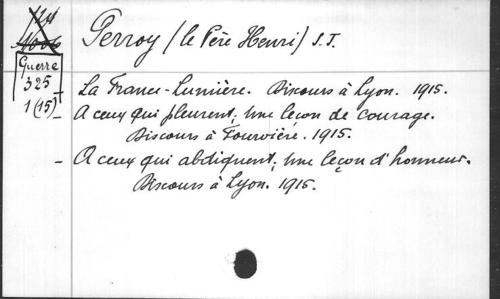 Perroy (le Père Henri) S.J.
Guerre
325
1(15)
_ La France-Lumière. Discours à Lyon. 1915.
_ A ceux qui pleurent; une leçon de courage.
Discours à Fourvière. 1915.
_ A ceux qui abdiquent; une leçon d'honneur.
Discours à Lyon. 1915.